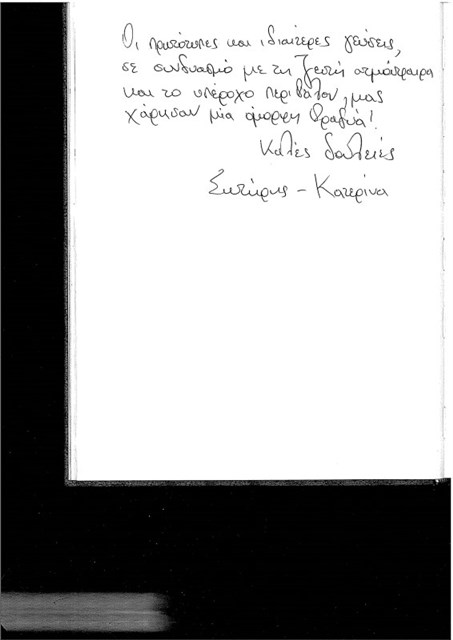 Οι πρωτότυπες και ιδιαίτερες γεύσεις,
σε συνδυασμό με τη ζεστή ατμόσφαιρα
και το υπέροχο περιβάλον, μας
χάρησαν μία όμορφη βραδυά!
Καλές δουλειές
Σωτήρης - Κατερίνα